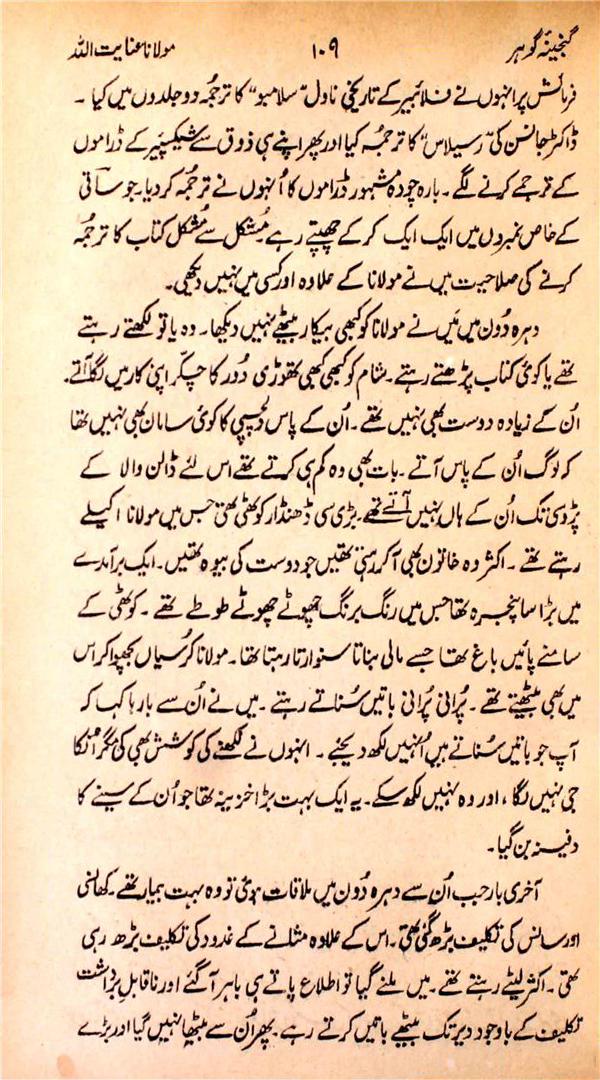 گنجینۂ گوہر ۱۰۹ مولانا عنایت اللہ
فرمائش پر انہوں نے فلائبیر کے تاریخی ناول "سلامبو" کا ترجمہ دو جلدوں میں کیا ۔
ڈاکٹر جانسن کی "رسیلاس" کا ترجمہ کیا اور پھر اپنے ہی ذوق سے شیکسپیر کے ڈراموں
کے ترجمے کرنے لگے ۔ بارہ چودہ مشہور ڈراموں کا اُنہوں نے ترجمہ کر دیا ۔ جو ساقی
کے خاص نمبروں میں ایک ایک کر کے چھپتے رہے ۔ مُشکل سے مُشکل کتاب کا ترجمہ
کرنے کی صلاحیت میں نے مولانا کے علاوہ اور کسی میں نہیں دیکھی۔
دہرہ دُون میں مَیں نے مولانا کو کبھی بیکار بیٹھے نہیں دیکھا ۔ وہ یا تو لکھتے رہتے
تھے یا کوئی کتاب پڑھتے رہتے ۔ شام کو کبھی کبھی تھوڑی دُور کا چکّر اپنی کار میں لگا آتے۔
اُن کے زیادہ دوست بھی نہیں تھے ۔ اُن کے پاس دلچسپی کا کوئی سامان بھی نہیں تھا
کہ لوگ اُن کے پاس آتے ۔ بات بھی وہ کم ہی کرتے تھے اس لئے ڈالن والا کے
پڑوسی تک اُن کے ہاں نہیں آتے تھے ۔ بڑی سی ڈھنڈار کوٹھی تھی جس میں مولانا اکیلے
رہتے تھے ۔ اکثر وہ خاتون بھی آ کر رہتی تھیں جو دوست کی بیوہ تھیں ۔ ایک برآمدے
میں بڑا سا پنجرہ تھا جس میں رنگ برنگ چھوٹے چھوٹے طوطے تھے ۔ کوٹھی کے
سامنے پائیں باغ تھا جسے مالی بناتا سنوارتا رہتا تھا ۔ مولانا کرسیاں بچھوا کر اس
میں بھی بیٹھتے تھے ۔ پُرانی پُرانی باتیں سُناتے رہتے ۔ میں نے اُن سے بارہا کہا کہ
آپ جو باتیں سُناتے ہیں اُنہیں لکھ دیجئے ۔ انہوں نے لکھنے کی کوشش بھی کی مگر اُنکا
جی نہیں لگا ، اور وہ نہیں لکھ سکے ۔ یہ ایک بہت بڑا خزینہ تھا جو اُن کے سینے کا
دفینہ بن گیا ۔
آخری بار جب اُن سے دہرہ دُون میں ملاقات ہوئی تو وہ بہت بیمار تھے ۔ کھانسی
اور سانس کی تکلیف بڑھ گئی تھی ۔ اس کے علاوہ مثانے کے غدود کی تکلیف بڑھ رہی
تھی ۔ اکثر لیٹے رہتے تھے ۔ میں ملنے گیا تو اطلاع پاتے ہی باہر آ گئے اور ناقابلِ برداشت
تکلیف کے باوجود دیر تک بیٹھے باتیں کرتے رہے ۔ پھر اُن سے بیٹھا نہیں گیا اور بڑے